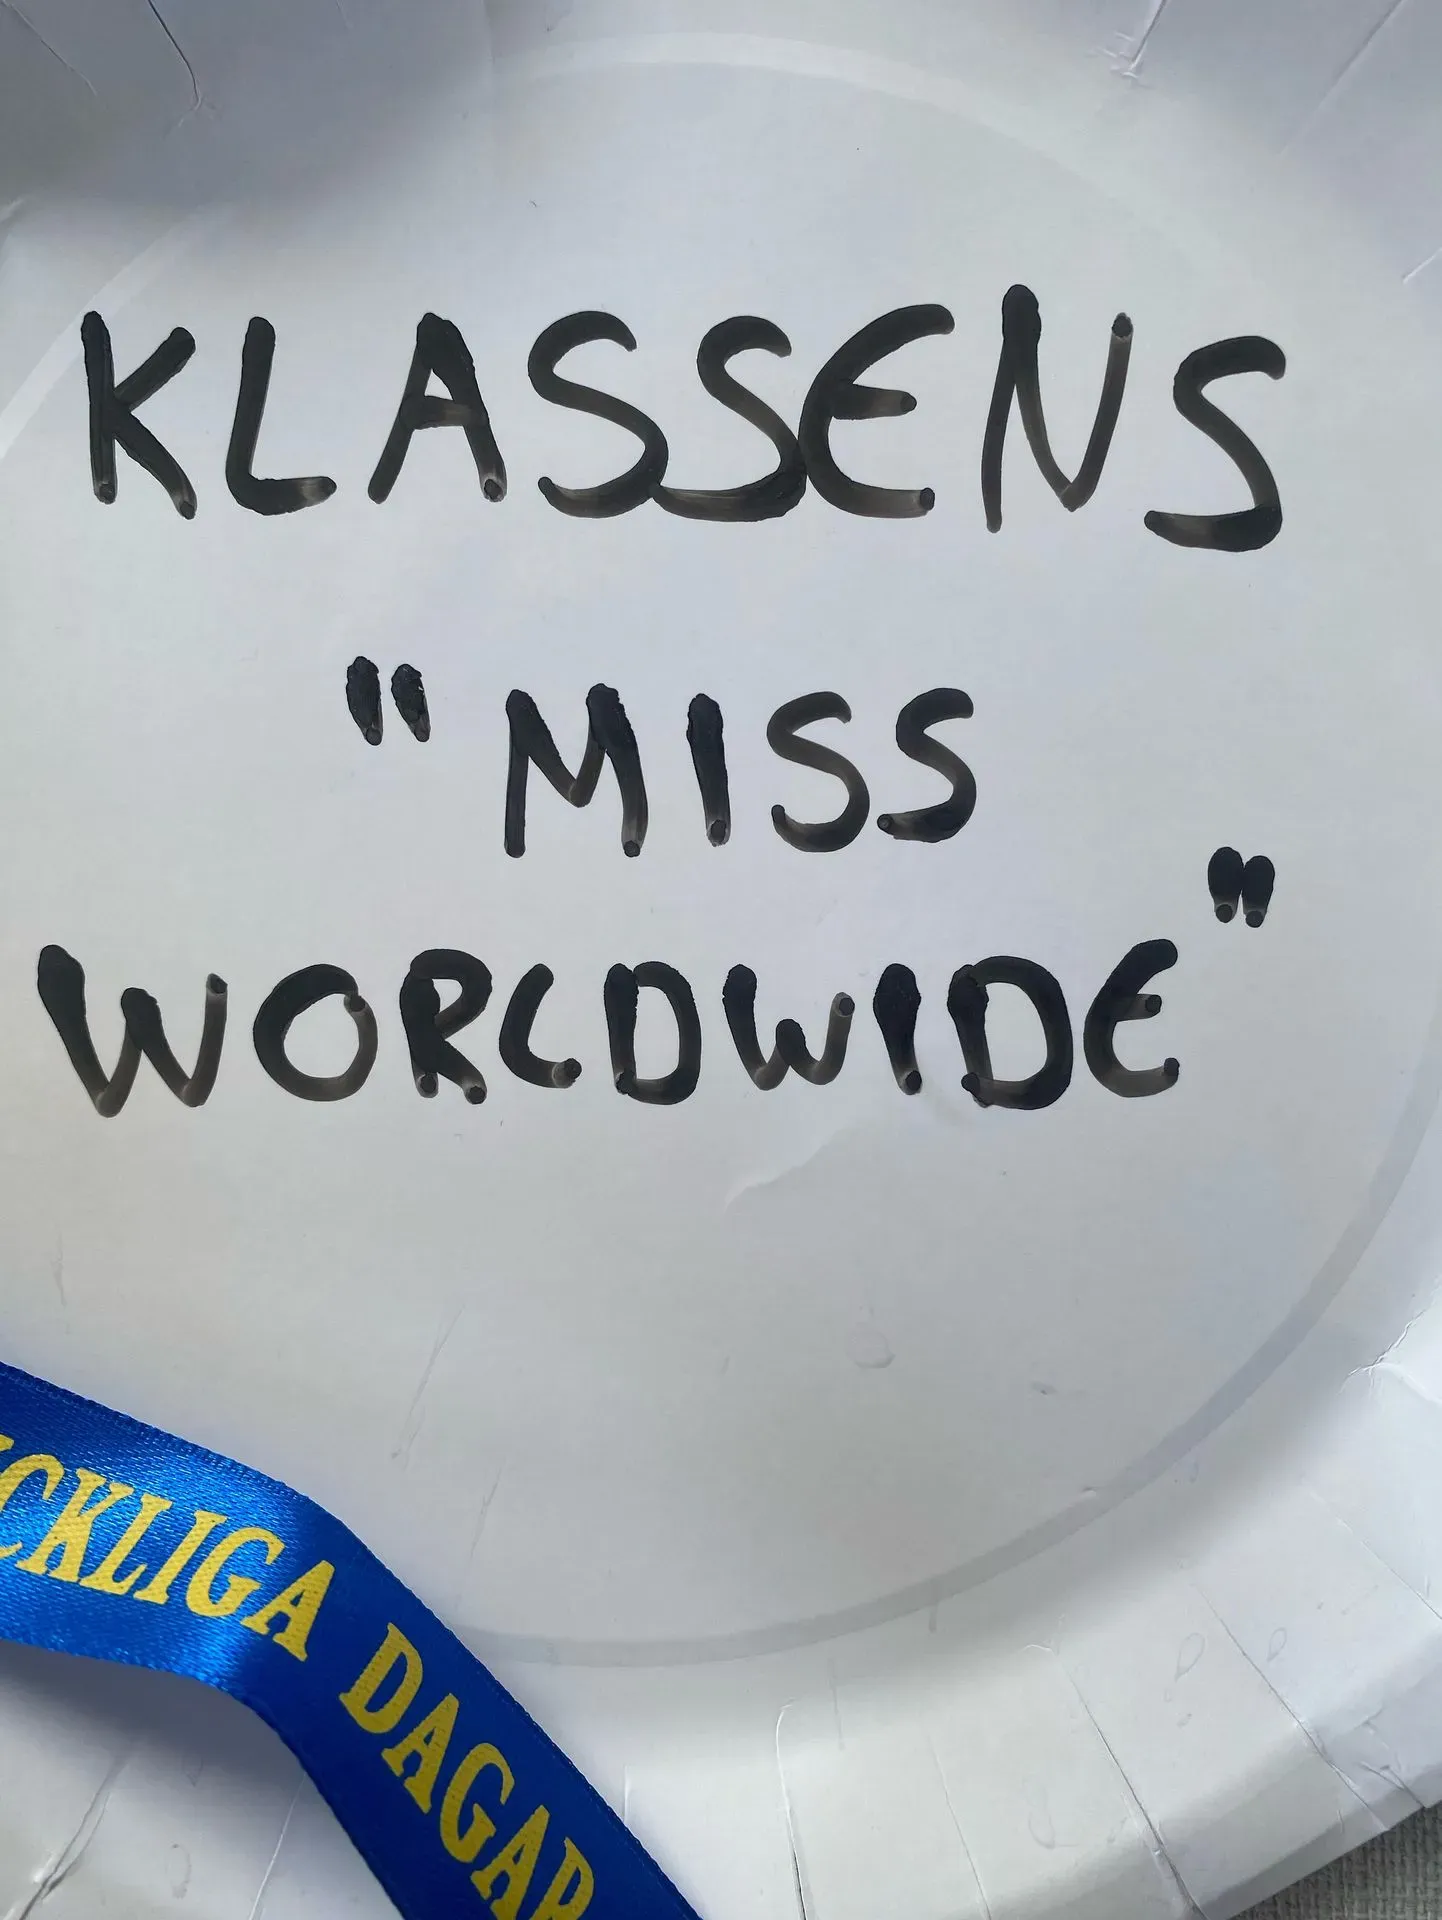 KLASSENS
"MISS
WORLDWIDE"
CKLIGA DAGAR